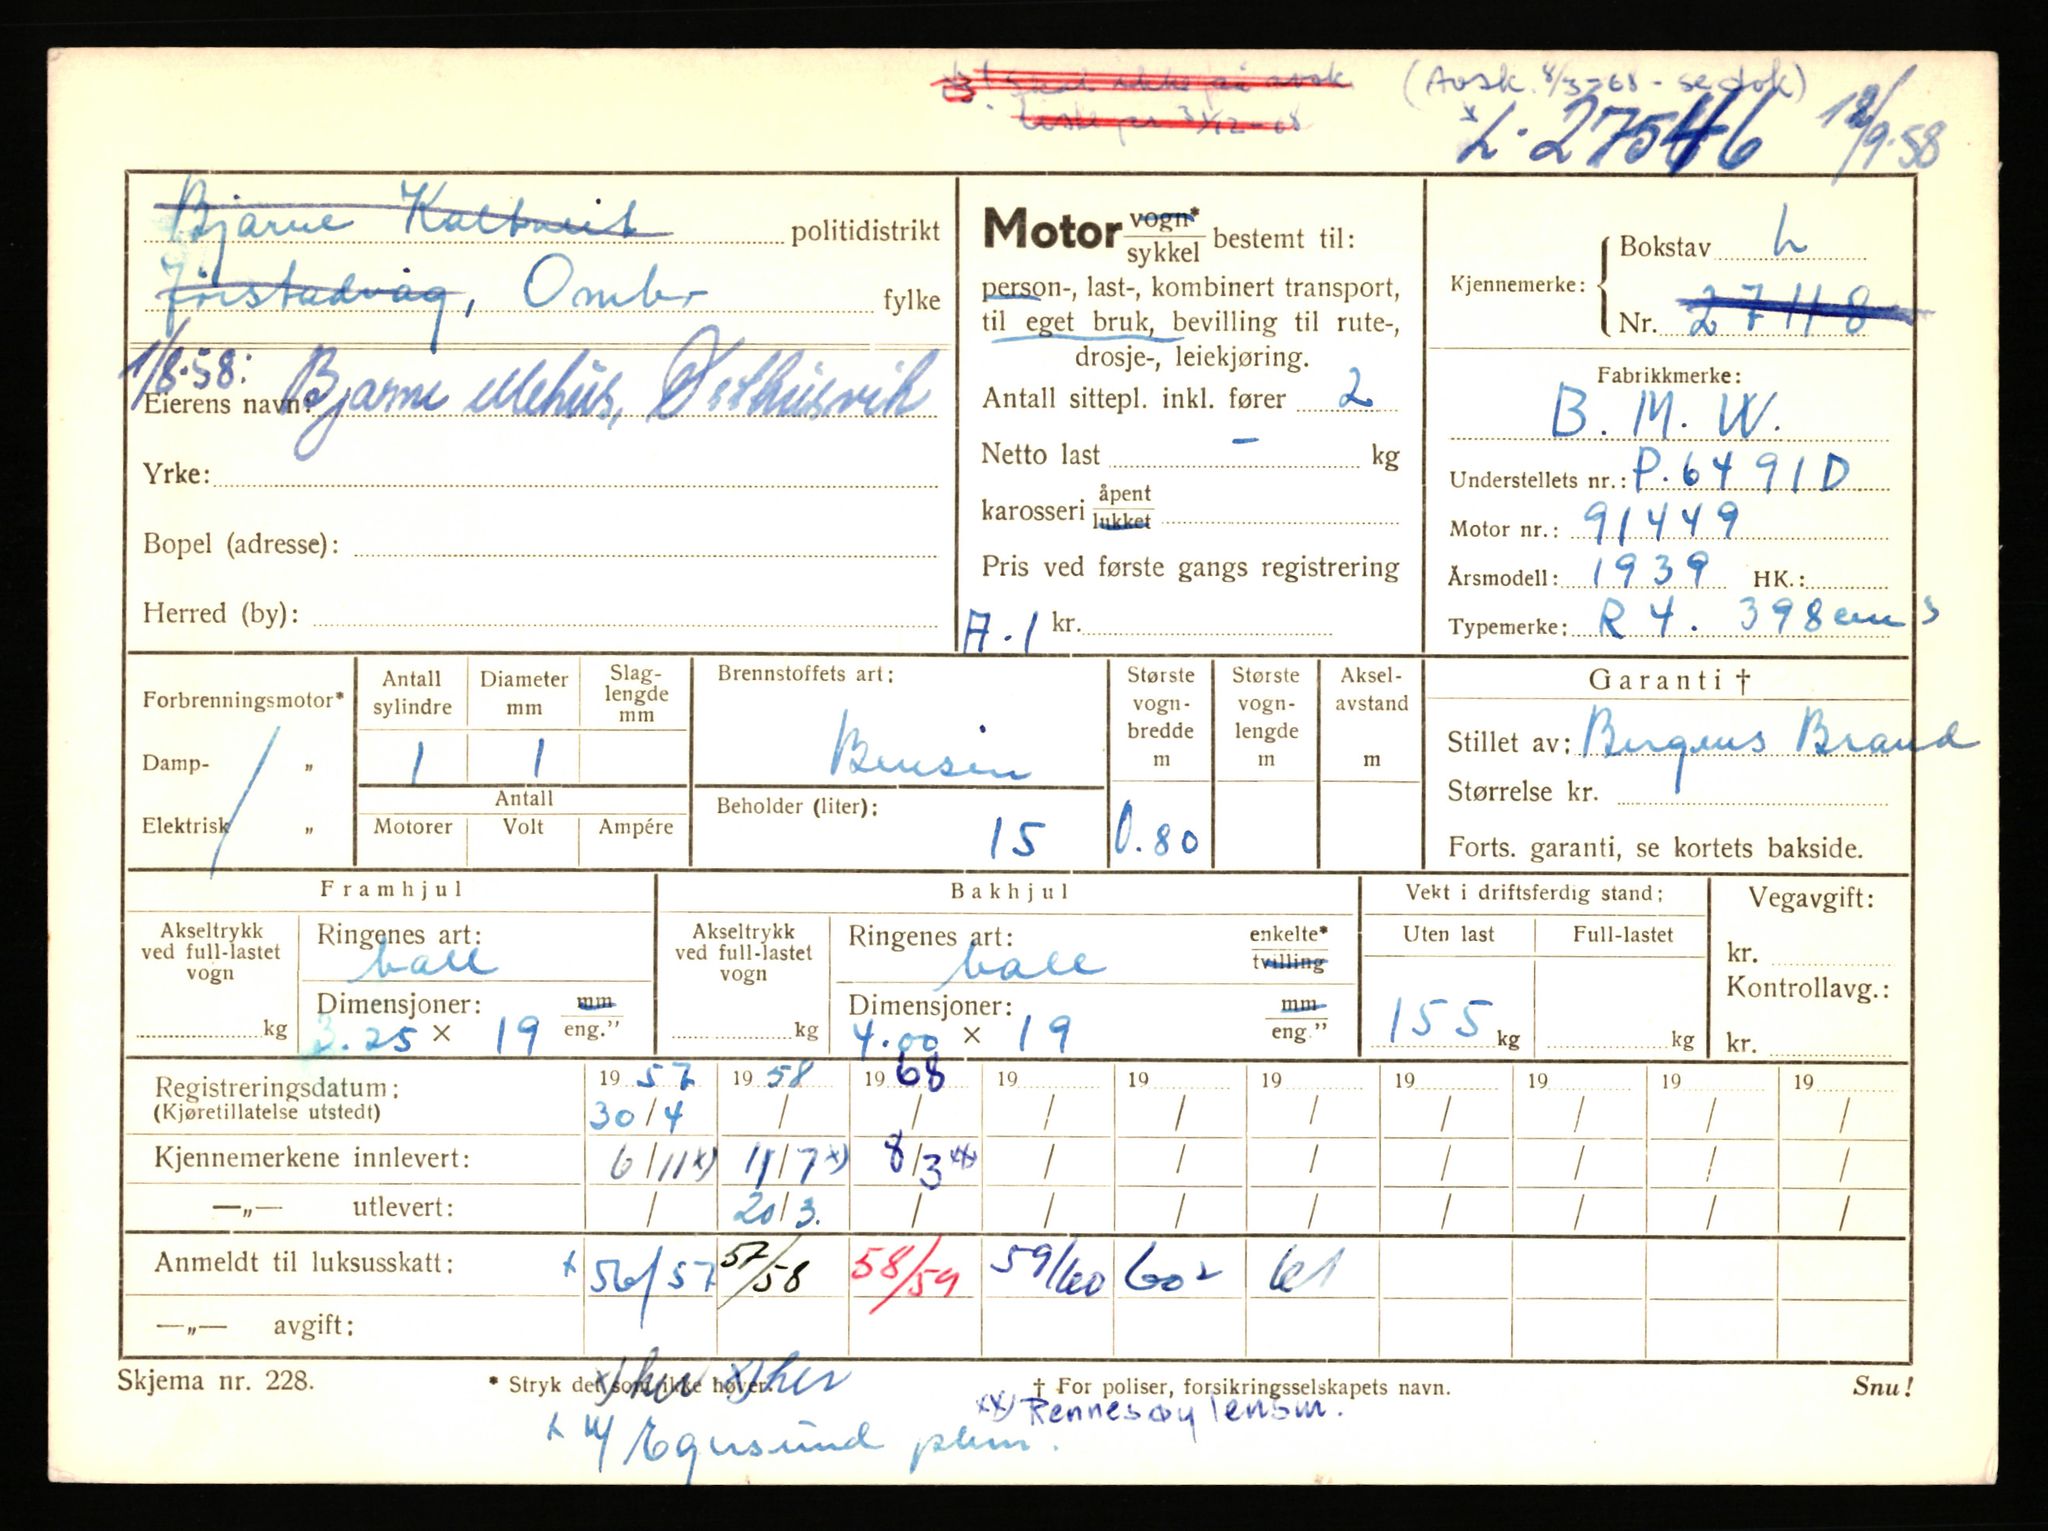 (Avsk. 8/3-68 - se dok)
x L-27546 12/9-58
Bjarne Kaltveit politidistrikt
Jørstadvåg, Ombo fylke
1/8-58: Bjarne Mehus, Østhusvik
Eierens navn:
Yrke:
Bopel (adresse):
Herred (by):
Motor vogn* sykkel bestemt til:
person-, last-, kombinert transport,
til eget bruk, bevilling til rute-,
drosje-, leiekjøring.
Antall sittepl. inkl. fører 2
Netto last - kg
karosseri åpent lukket
Pris ved første gangs registrering
A.1 kr.
Kjennemerke: Bokstav L
Nr. 27118
Fabrikkmerke:
B. M. W.
Understellets nr.: P. 6491D
Motor nr.: 91449
Årsmodell: 1939 HK.:
Typemerke: R 4. 398 cm3
Forbrenningsmotor*
Damp- „
Elektrisk „
Antall sylindre 1
Diameter mm 1
Slag-lengde mm
Antall
Motorer Volt Ampére
Brennstoffets art:
Bensin
Beholder (liter):
15
Største vogn-bredde m
0.80
Største vogn-lengde m
Aksel-avstand m
Garanti †
Stillet av: Bergens Brand
Størrelse kr.
Forts. garanti, se kortets bakside.
Framhjul
Akseltrykk ved full-lastet vogn
kg
Ringenes art:
ball
Dimensjoner: mm
3.25 × 19 eng.”
Bakhjul
Akseltrykk ved full-lastet vogn
kg
Ringenes art: enkelte*
ball tvilling
Dimensjoner: mm
4.00 × 19 eng.”
Vekt i driftsferdig stand:
Uten last Full-lastet
155 kg kg
Vegavgift:
kr.
Kontrollavg.:
kr.
Registreringsdatum: 19 57 19 58 19 68 19 19 19 19 19 19 19
(Kjøretillatelse utstedt) 30/4 / / / / / / / / /
Kjennemerkene innlevert: 6/11 x) 11/7 x) 8/3 xx) / / / / / / /
—„— utlevert: / 20/3. / / / / / / / /
Anmeldt til luksusskatt: x 56/57 57/58 58/59 59/60 60² 61
—„— avgift:
Skjema nr. 228. * Stryk det som ikke høver. † For poliser, forsikringsselskapets navn. Snu!
x) her x) her
xx) Rennesøy lensm.
Egersund